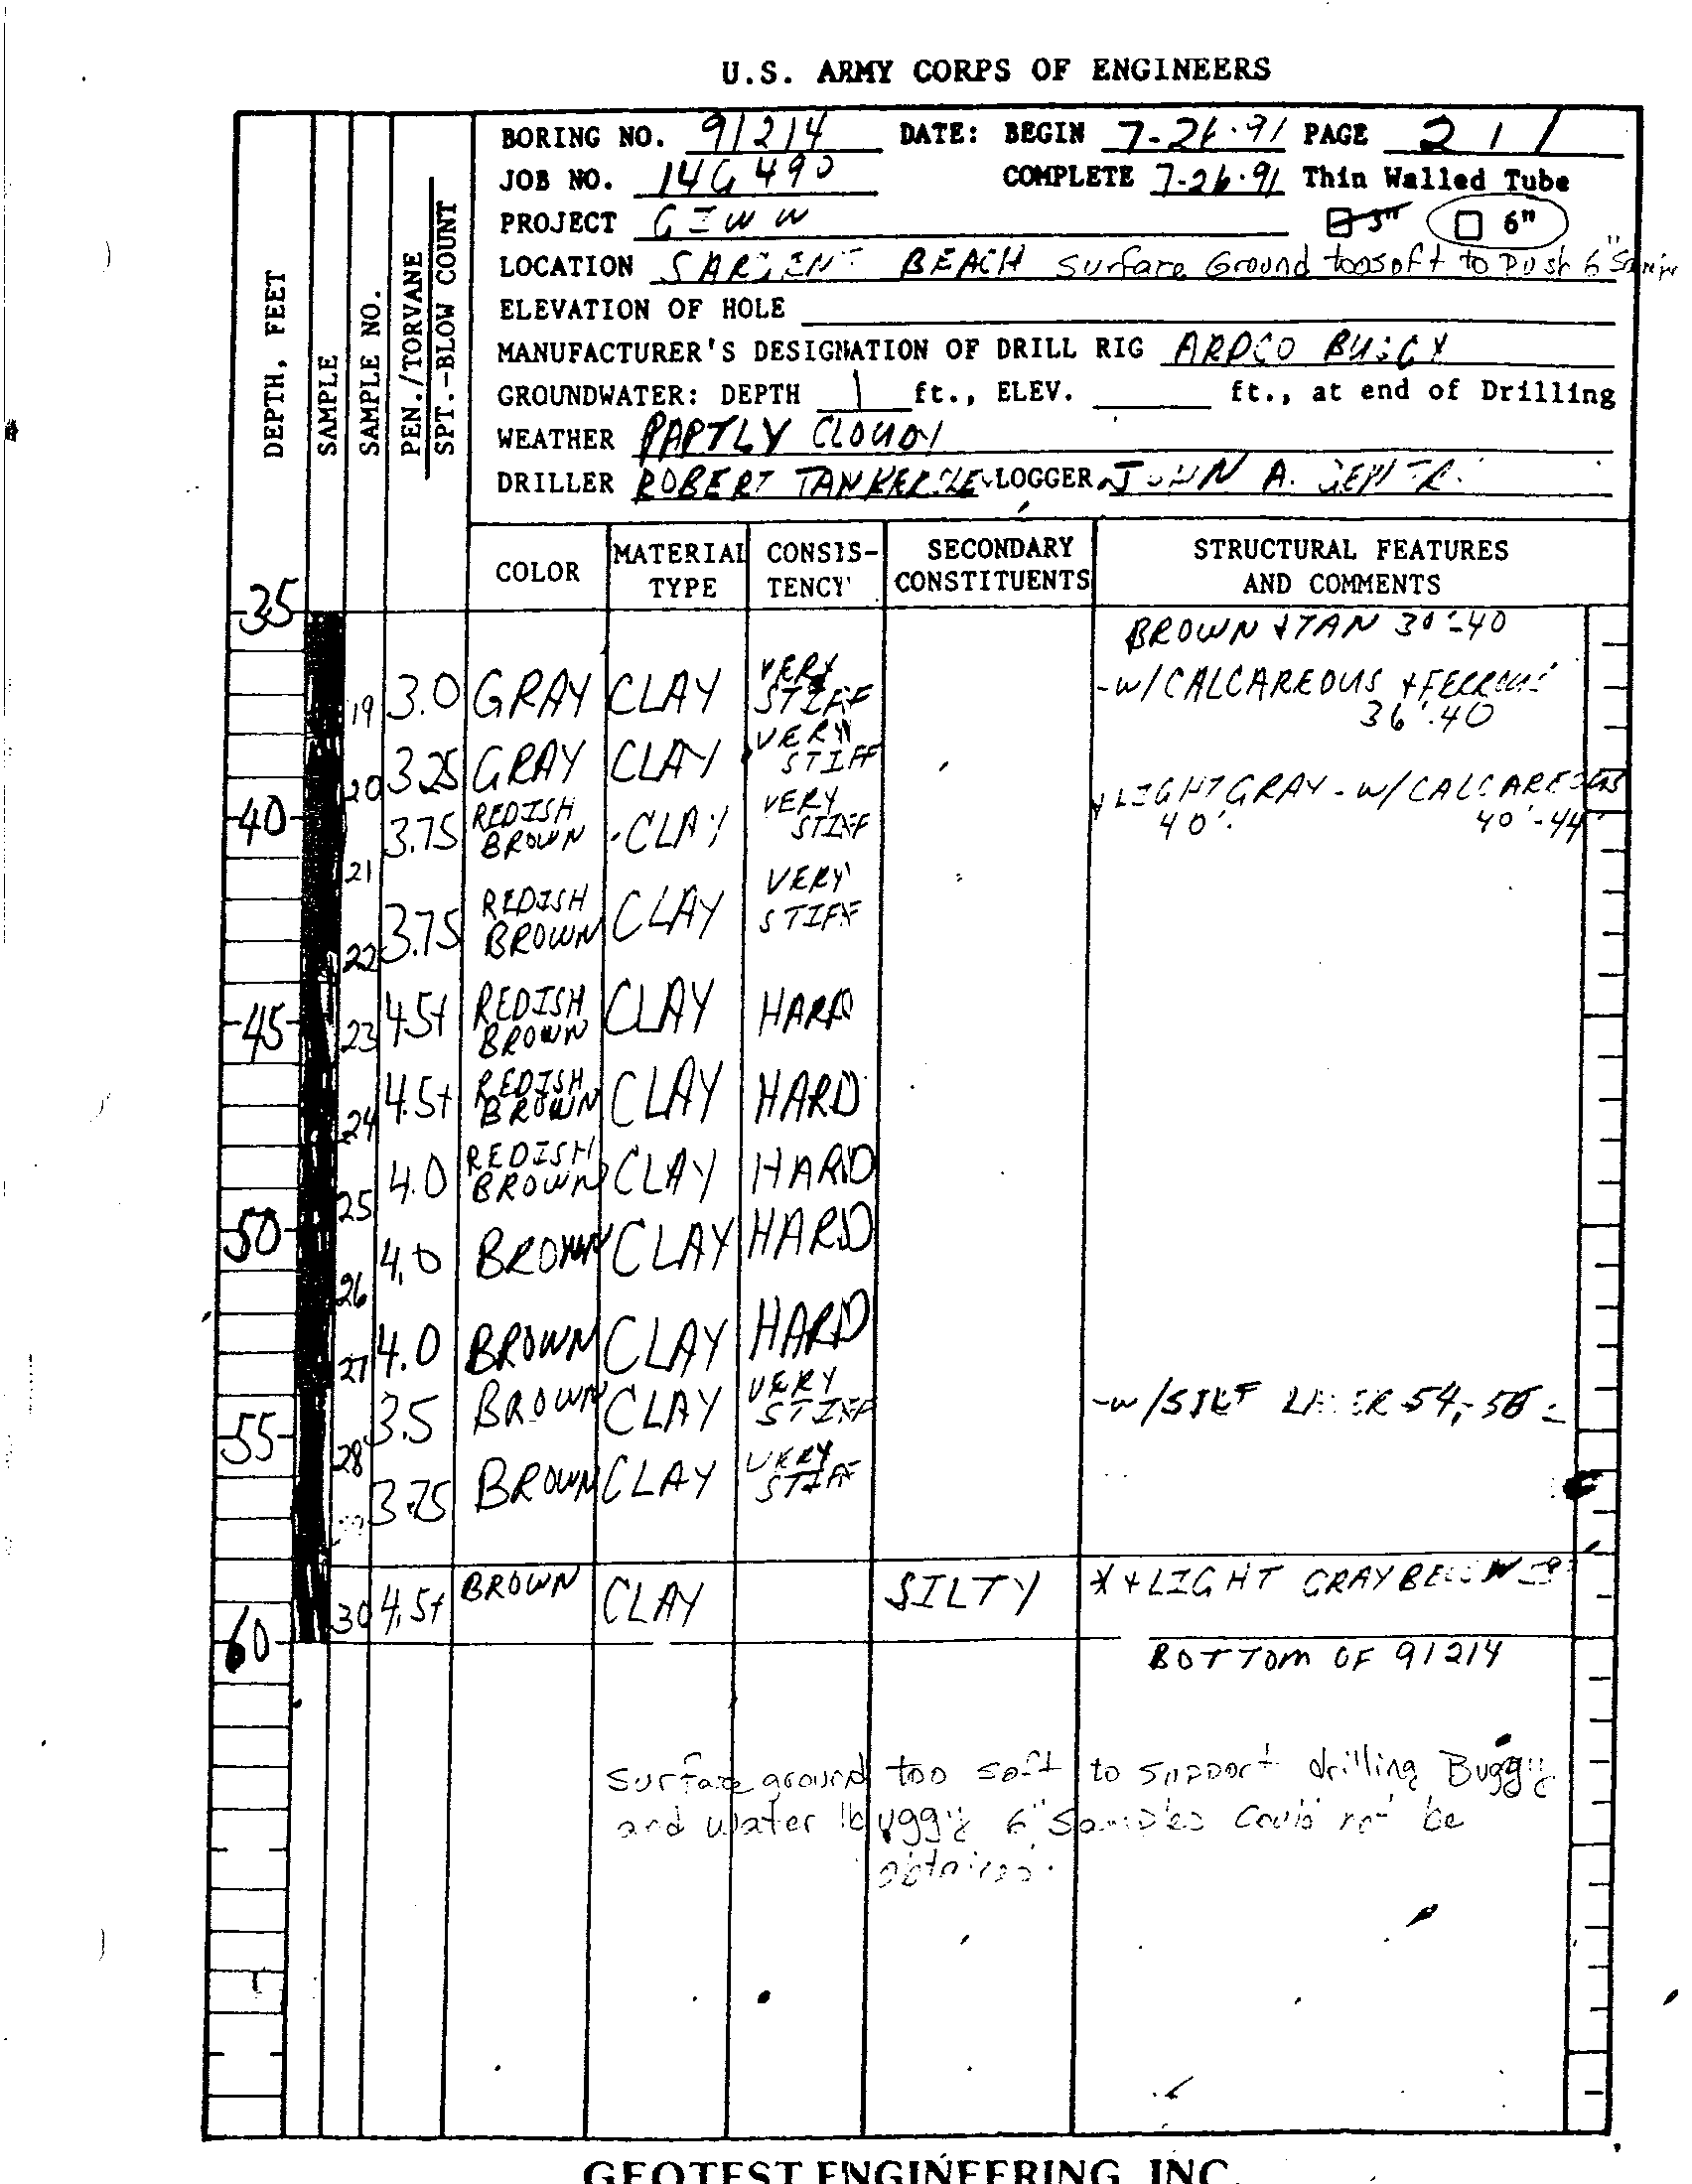 U.S. ARMY CORPS OF ENGINEERS
BORING NO. 91214 DATE: BEGIN 7-26-91 PAGE 2 / /
JOB NO. 14G490 COMPLETE 7-26-91 Thin Walled Tube
PROJECT GIWW 3" 6"
LOCATION SARGENT BEACH Surface Ground too soft to Push 6"
ELEVATION OF HOLE
MANUFACTURER'S DESIGNATION OF DRILL RIG ARDCO BUGGY
GROUNDWATER: DEPTH 1 ft., ELEV. ft., at end of Drilling
WEATHER PARTLY CLOUDY
DRILLER ROBERT LOGGER JOHN A.
DEPTH, FEET
SAMPLE
SAMPLE NO.
PEN./TORVANE
SPT.-BLOW COUNT
COLOR MATERIAL TYPE CONSIS-TENCY SECONDARY CONSTITUENTS STRUCTURAL FEATURES AND COMMENTS
35
BROWN & TAN 38'-40
19 3.0 GRAY CLAY VERY STIFF -W/CALCAREOUS & FERROUS
36'-40
20 3.25 GRAY CLAY VERY STIFF
40 21 3.75 REDISH BROWN CLAY VERY STIFF & LIGHT GRAY - W/CALCAREOUS
40'. 40'-44'
22 3.75 REDISH BROWN CLAY VERY STIFF
45 23 4.5+ REDISH BROWN CLAY HARD
24 4.5+ REDISH BROWN CLAY HARD
25 4.0 REDISH BROWN CLAY HARD
50 26 4.0 BROWN CLAY HARD
27 4.0 BROWN CLAY HARD
55 28 3.5 BROWN CLAY VERY STIFF -W/SILT LAYER 54'-56'
29 3.75 BROWN CLAY VERY STIFF
30 4.5+ BROWN CLAY SILTY * & LIGHT GRAY BELOW
60 BOTTOM OF 91214
Surface ground too soft to support drilling Buggy
and water buggy 6" Samples Could not be
obtained.
GEOTEST ENGINEERING, INC.